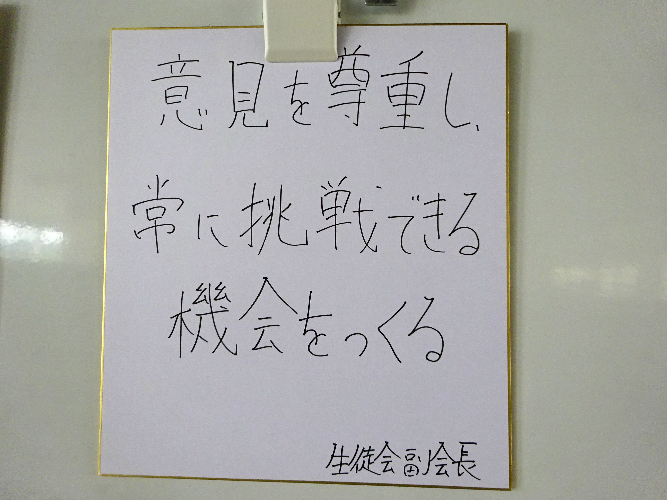 意見を尊重し、
常に挑戦できる
機会をつくる
生徒会副会長